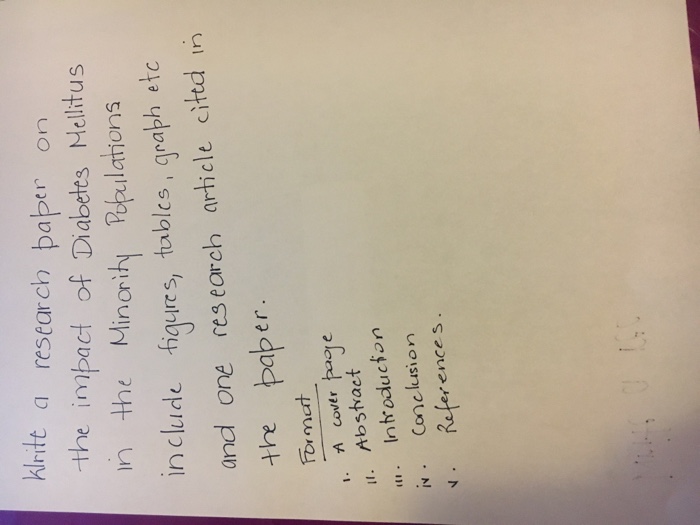 Write a research paper on
the impact of Diabetes Mellitus
in the Minority Populations
include figures, tables, graph etc
and one research article cited in
the paper.
Format
I. A cover page
II. Abstract
III. Introduction
IV. Conclusion
V. References.